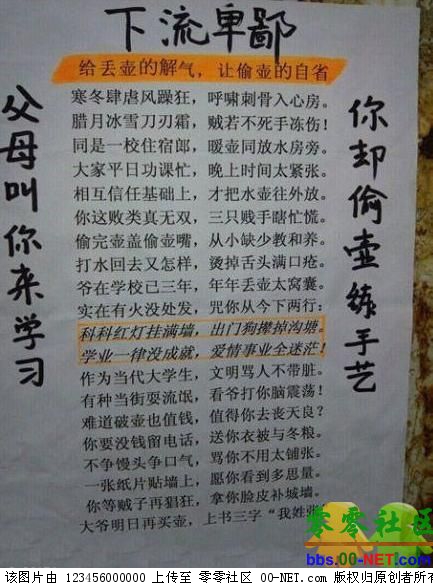 下流卑鄙
给丢壶的解气，让偷壶的自省
父母叫你来学习
你却偷壶练手艺
寒冬肆虐风躁狂，呼啸刺骨入心房。
腊月冰雪刀刃霜，贼若不死手冻伤！
同是一校住宿郎，暖壶同放水房旁。
大家平日功课忙，晚上时间太紧张。
相互信任基础上，才把水壶往外放。
你这败类真无双，三只贱手瞎忙慌。
偷完壶盖偷壶嘴，从小缺少教和养。
打水回去又怎样，烫掉舌头满口疮。
爷在学校已三年，年年丢壶太窝囊。
实在有火没处发，咒你从今下两行：
科科红灯挂满墙，出门狗撵掉沟塘。
学业一律没成就，爱情事业全迷茫！
作为当代大学生，文明骂人不带脏。
有种当街耍流氓，看爷打你脑震荡！
难道破壶也值钱，值得你去丧天良？
你要没钱留电话，送你衣被与冬粮。
不争馒头争口气，骂你不用太铺张。
一张纸片贴墙上，愿你看到多思量。
你等贼子再猖狂，拿你脸皮补城墙。
大爷明日再买壶，上书三字“我姓
零零社区
bbs.00-NET.com
该图片由 123456000000 上传至 零零社区 00-NET.com 版权归原创者所有